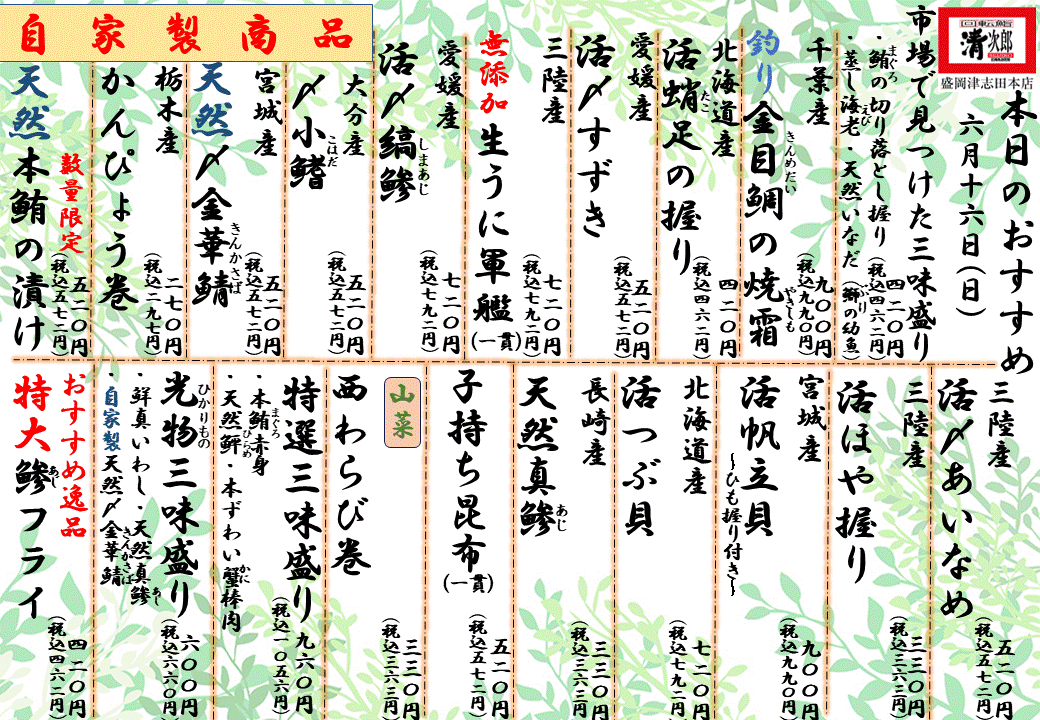 回転鮨
清次郎
盛岡津志田本店
本日のおすすめ
六月十六日(日)
市場で見つけた三味盛り
・鮪の切り落とし握り
まぐろ
・蒸し海老・天然いなだ(鰤の幼魚)
えび
ぶり
四二〇円
(税込四六二円)
千葉産
釣り金目鯛の焼霜
きんめだい
やきしも
九〇〇円
(税込九九〇円)
北海道産
活蛸足の握り
たこ
四二〇円
(税込四六二円)
愛媛産
活〆すずき
五二〇円
(税込五七二円)
三陸産
無添加生うに軍艦(一貫)
七二〇円
(税込七九二円)
愛媛産
活〆縞鯵
しまあじ
七二〇円
(税込七九二円)
大分産
〆小鰭
こはだ
五二〇円
(税込五七二円)
宮城産
天然〆金華鯖
きんかさば
五二〇円
(税込五七二円)
栃木産
かんぴょう巻
二七〇円
(税込二九七円)
自家製商品
数量限定
天然本鮪の漬け
五二〇円
(税込五七二円)
三陸産
活〆あいなめ
五二〇円
(税込五七二円)
三陸産
活ほや握り
三三〇円
(税込三六三円)
宮城産
活帆立貝
~ひも握り付き~
九〇〇円
(税込九九〇円)
北海道産
活つぶ貝
七二〇円
(税込七九二円)
長崎産
天然真鯵
あじ
三三〇円
(税込三六三円)
子持ち昆布(一貫)
五二〇円
(税込五七二円)
山菜
西わらび巻
三三〇円
(税込三六三円)
特選三味盛り
・本鮪赤身
まぐろ
・天然鮃・本ずわい蟹棒肉
ひらめ
かに
九六〇円
(税込一〇五六円)
光物三味盛り
ひかりもの
・鮮真いわし・天然真鯵
あじ
・自家製天然〆金華鯖
きんかさば
六〇〇円
(税込六六〇円)
おすすめ逸品
特大鯵フライ
あじ
四二〇円
(税込四六二円)